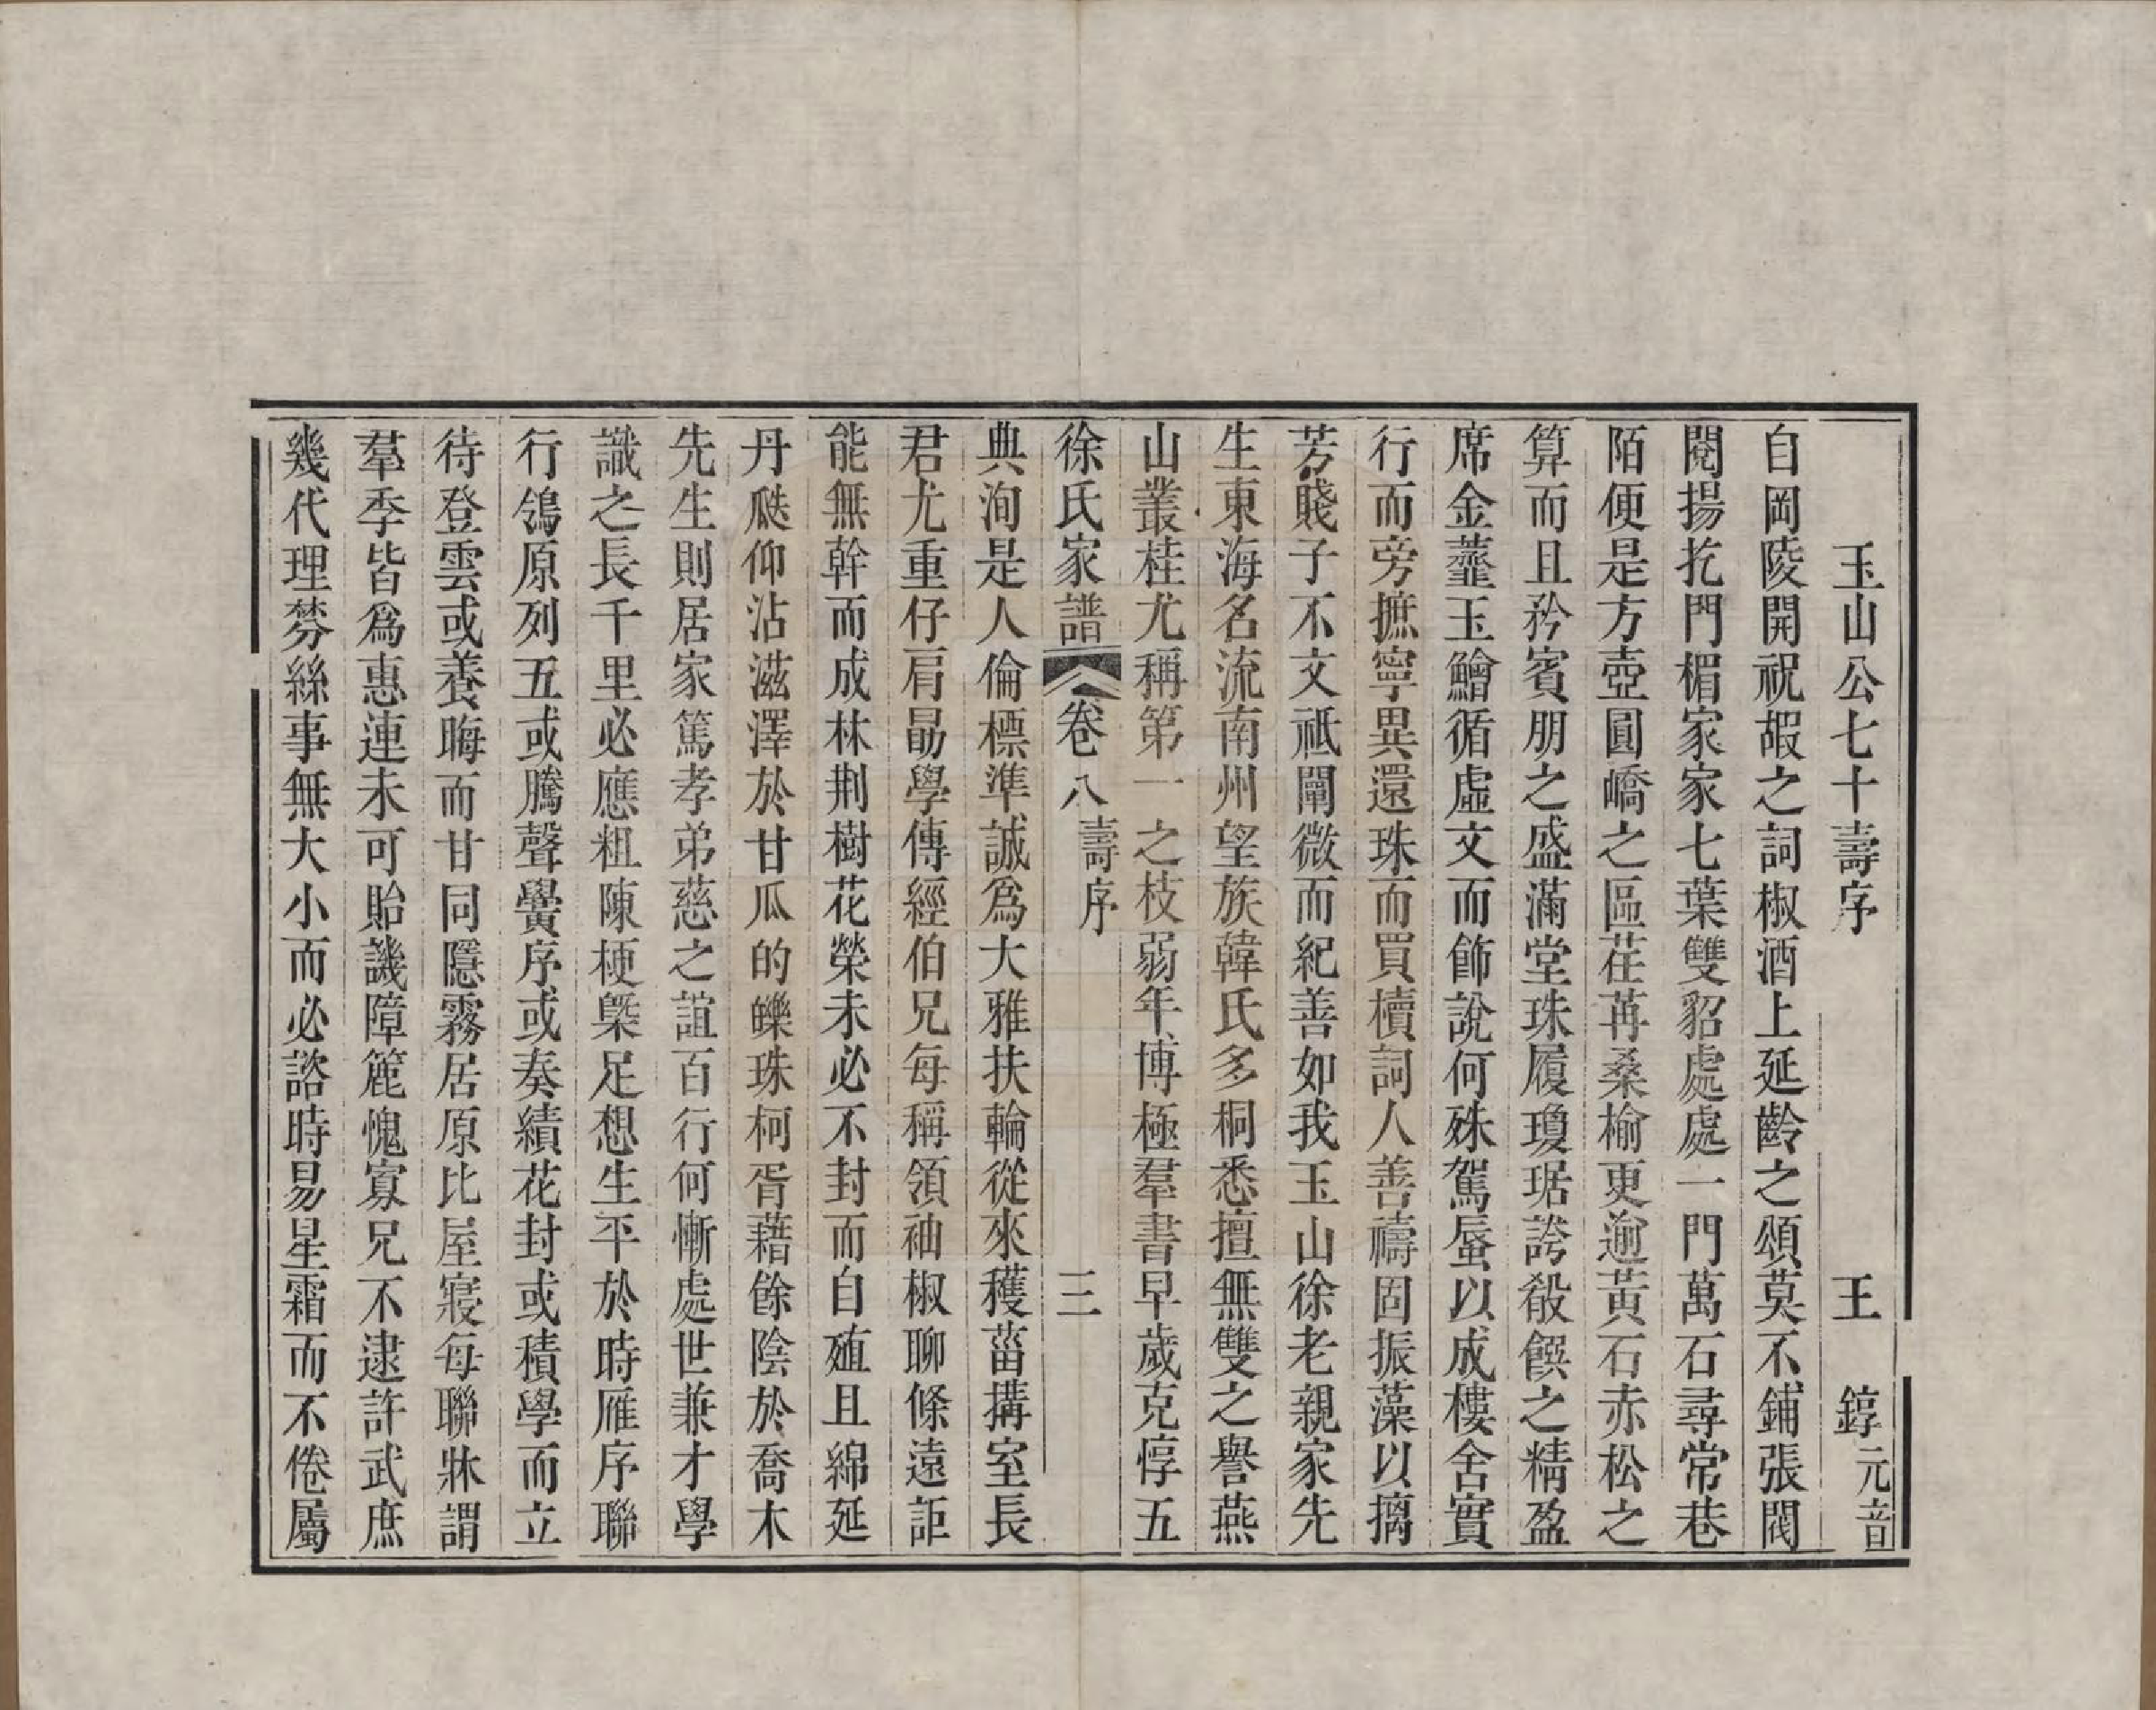 玉山公七十壽序　王　錞元音
自岡陵開祝嘏之詞椒酒上延齡之頌莫不鋪張閥
閱揚扢門楣家家七葉雙貂處處一門萬石尋常巷
陌便是方壺圓嶠之區荏苒桑榆更逾黃石赤松之
算而且矜賓朋之盛滿堂珠履瓊琚誇殽饌之精盈
席金虀玉鱠循虛文而飾說何殊駕蜃以成樓舍實
行而旁摭寧異還珠而買櫝詞人善禱固振藻以摛
芳賤子不文祇闡微而紀善如我玉山徐老親家先
生東海名流南州望族韓氏多桐悉擅無雙之譽燕
山叢桂尤稱第一之枝弱年博極羣書早歲克惇五
徐氏家譜　卷八　壽序　三
典洵是人倫標準誠爲大雅扶輪從來穫菑搆室長
君尤重仔肩勗學傳經伯兄每稱領袖椒聊條遠詎
能無幹而成林荆樹花榮未必不封而自殖且綿延
丹瓞仰沾滋澤於甘瓜的皪珠柯胥藉餘陰於喬木
先生則居家篤孝弟慈之誼百行何慚處世兼才學
識之長千里必應粗陳梗槩足想生平於時雁序聯
行鴒原列五或騰聲黌序或奏績花封或積學而立
待登雲或養晦而甘同隱霧居原比屋寢每聯牀謂
羣季皆爲惠連未可貽譏障簏愧寡兄不逮許武庶
幾代理棼絲事無大小而必諮時易星霜而不倦屬